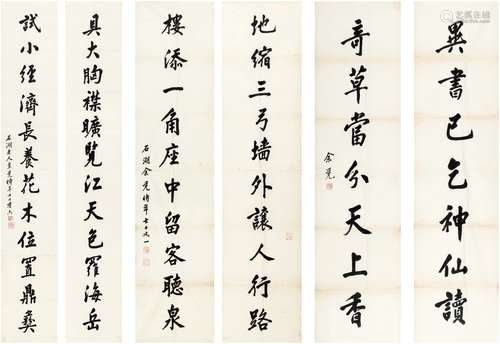 異書已乞神仙讀
奇草當分天上香
余覺
地縮三弓墻外讓人行路
樓添一角座中留客聽泉
石湖余覺時年七十又一
具大胸襟曠覽江天色羅海岳
試小經濟長養花木位置鼎彝